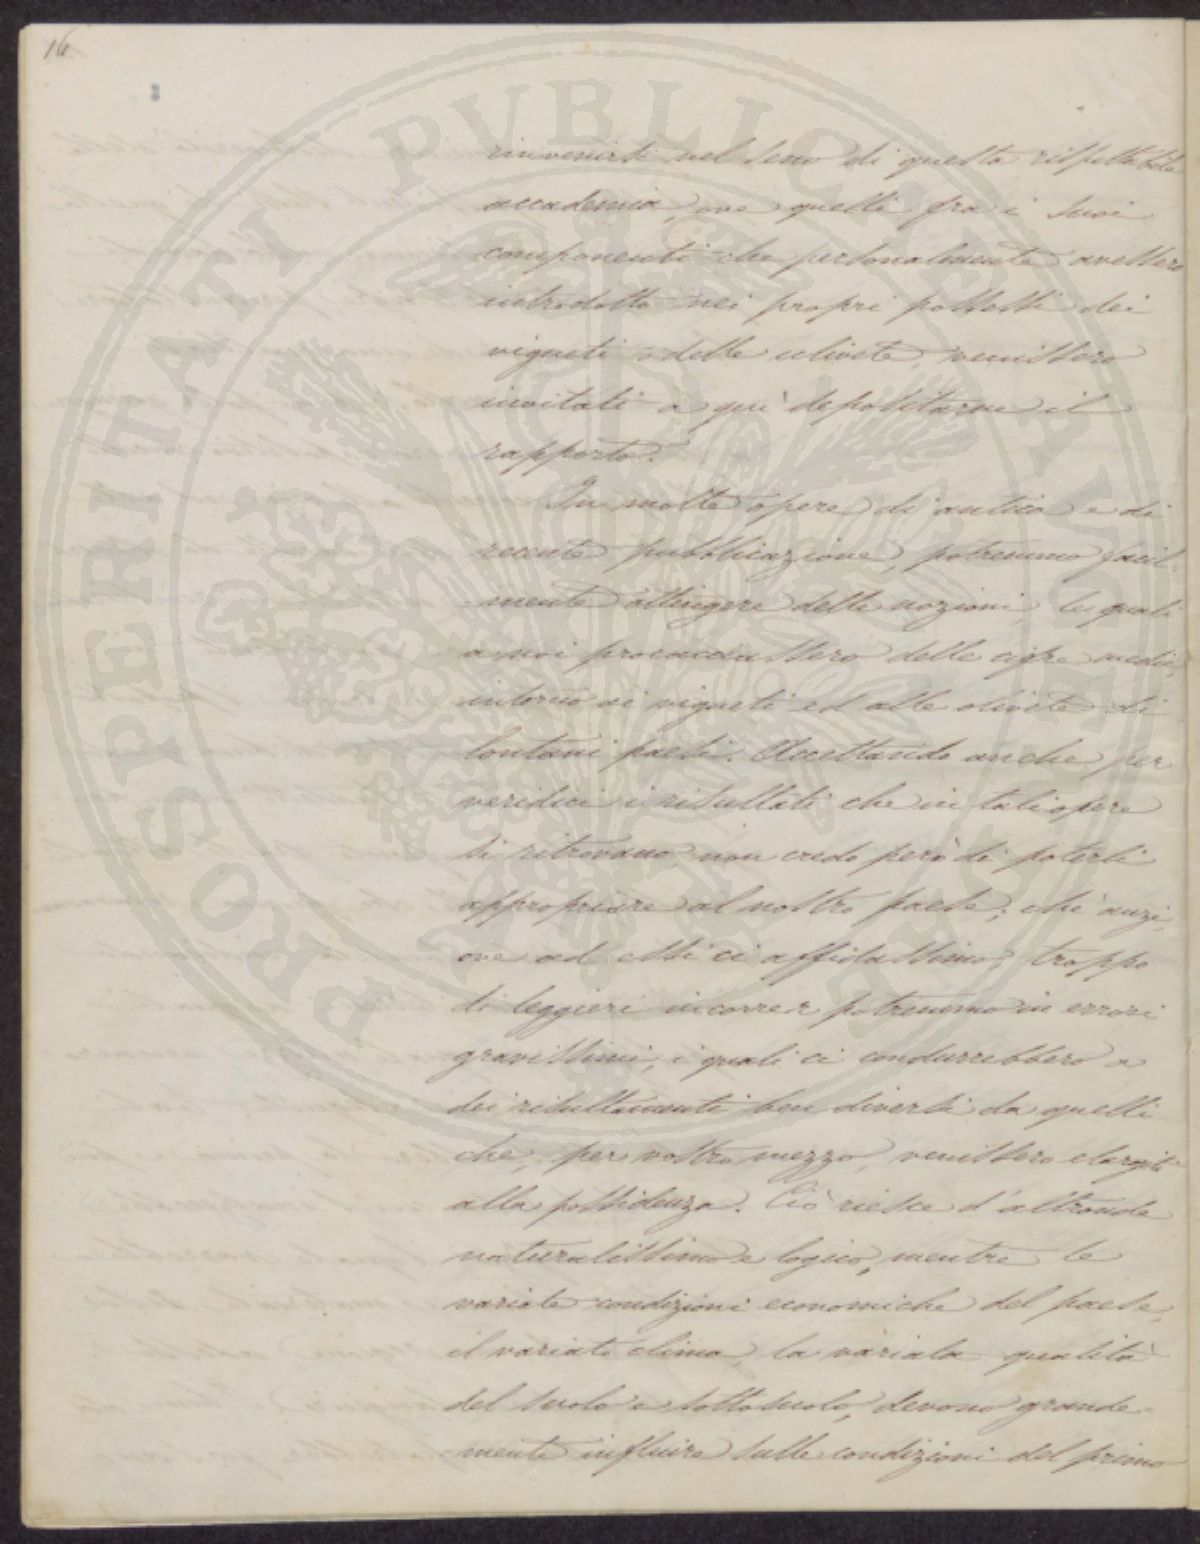 16
rinvenirsi nel seno di questa rispettabile
accademia, ove quelli fra i suoi
componenti che personalmente avessero
introdotto nei propri possessi dei
vigneti o delle olivete, venissero
invitati a quì depositarne il
rapporto.
In molte opere di antica e di
recente pubblicazione, potremmo facil-
mente attingere delle nozioni, le quali
a noi procacciassero delle cifre medie,
intorno ai vigneti ed alle olivete di
lontani paesi. Accettando anche per
veridici i risultati che in tali opere
si ritrovano, non credo però di poterli
appropriare al nostro paese; chè anzi,
ove ad essi ci affidassimo, troppo
di leggieri incorrer potremmo in errori
gravissimi, i quali ci condurrebbero a
dei risultamenti ben diversi da quelli
che, per vostro mezzo, venissero elargiti
alla possidenza. Ciò riesce d'altronde
naturalissimo e logico, mentre le
variate condizioni economiche del paese,
il variato clima, la variata qualità
del suolo e sottosuolo, devono grande-
mente influire sulle condizioni del primo
PROSPERITATI PVBLICAE AVGENDAE